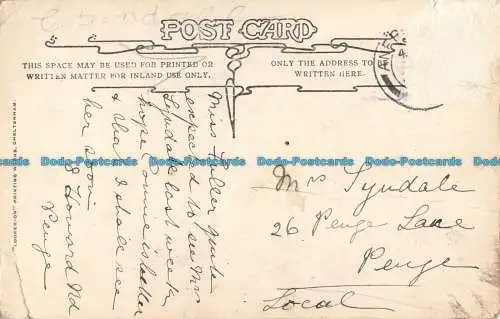 POST CARD
THIS SPACE MAY BE USED FOR PRINTED OR
WRITTEN MATTER FOR INLAND USE ONLY.
ONLY THE ADDRESS TO
BE WRITTEN HERE.
Miss Fuller quite
expected to see Mrs
Lyndale last week
hope Annie is better
& that I shall see
her soon.
8 Howard Rd
Penge
Mrs Tyndale
26 Penge Lane
Penge
Local
PRINTING WORKS, CHELTENHAM.
Doda-Postcards.com
Doda-Postcards.com
Doda-Postcards.com